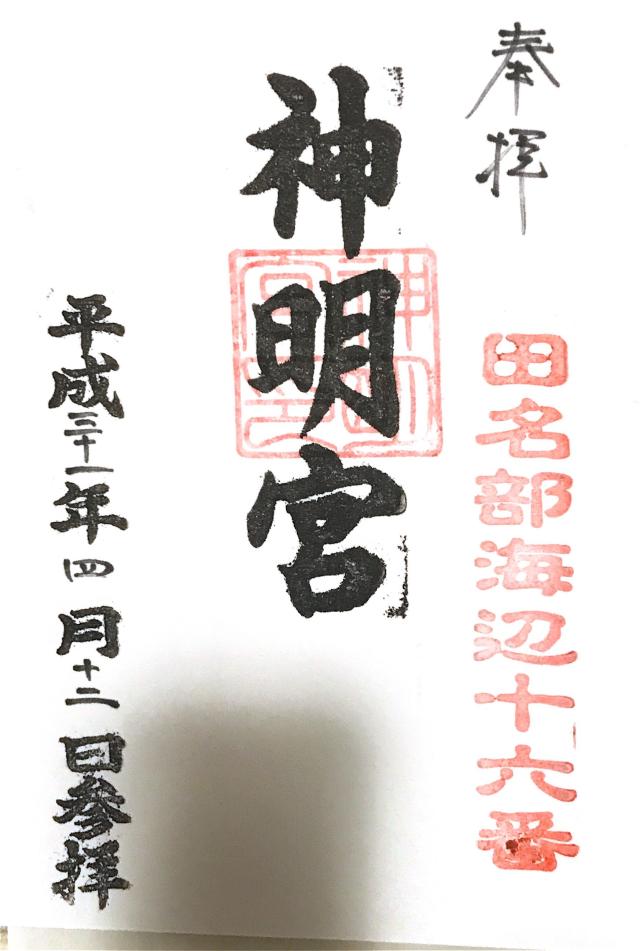 奉拝
田名部海辺十六番
神明宮
神明宮印
平成三十一年四月十二日参拝